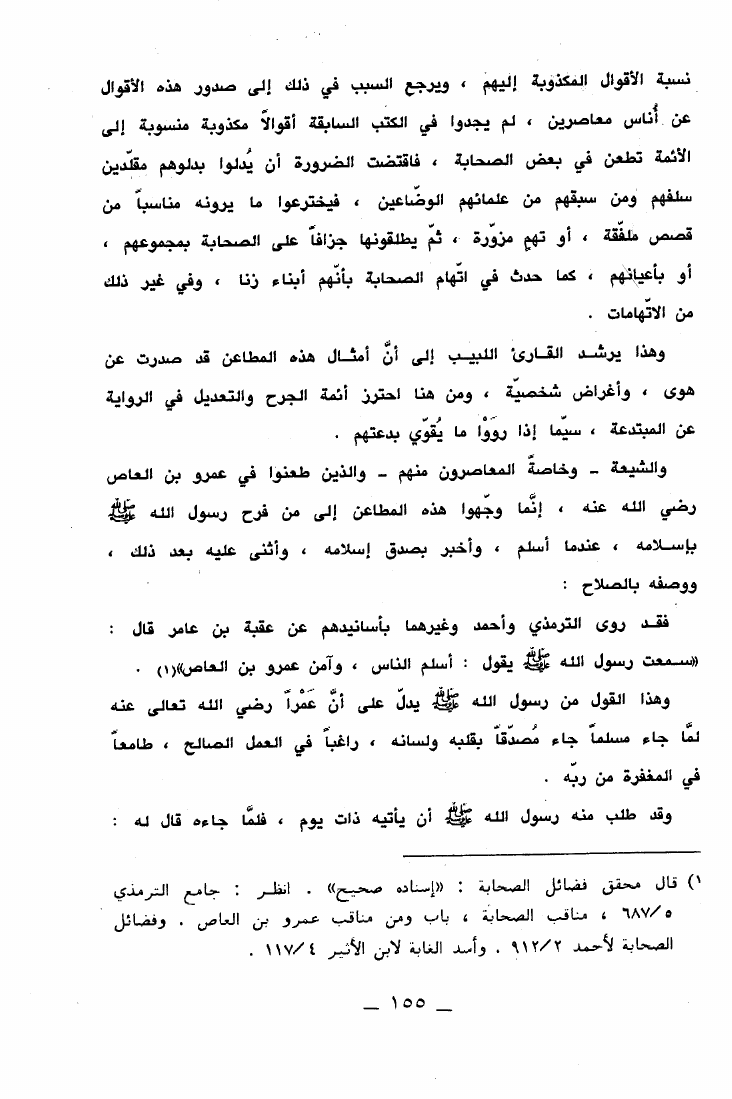 نسبة الأقوال المكذوبة إليهم ، ويرجع السبب في ذلك إلى صدور هذه الأقوال
عن أُناس معاصرين ، لم يجدوا في الكتب السابقة أقوالاً مكذوبة منسوبة إلى
الأئمة تطعن في بعض الصحابة ، فاقتضت الضرورة أن يُدلوا بدلوهم مقلّدين
سلفهم ومن سبقهم من علمائهم الوضّاعين ، فيخترعوا ما يرونه مناسباً من
قصص ملفّقة ، أو تهم مزوّرة ، ثمّ يطلقونها جزافاً على الصحابة بمجموعهم ،
أو بأعيانهم ، كما حدث في اتّهام الصحابة بأنّهم أبناء زنا ، وفي غير ذلك
من الاتّهامات .
وهذا يرشـد القـارئ اللبيـب إلى أنَّ أمثـال هذه المطاعن قد صدرت عن
هوى ، وأغراض شخصيّة ، ومن هنا احترز أئمة الجرح والتعديل في الرواية
عن المبتدعة ، سيّما إذا روَوْا ما يُقوّي بدعتهم .
والشيعة ـ وخاصةً المعاصرون منهم ـ والذين طعنوا في عمرو بن العاص
رضي الله عنه ، إنَّما وجّهوا هذه المطاعن إلى من فرح رسول الله ﷺ
بإسـلامه ، عندما أسلم ، وأخبر بصدق إسلامه ، وأثنى عليه بعد ذلك ،
ووصفه بالصلاح :
فقـد روى الترمذي وأحمد وغيرهما بأسانيدهم عن عقبة بن عامر قال :
«سـمعت رسول الله ﷺ يقول : أسلم الناس ، وآمن عمرو بن العاص»(١) .
وهذا القول من رسول الله ﷺ يدلّ على أنَّ عَمْراً رضي الله تعالى عنه
لمَّا جاء مسلماً جاء مُصدّقاً بقلبه ولسانه ، راغباً في العمل الصالح ، طامعاً
في المغفرة من ربّه .
وقد طلب منه رسول الله ﷺ أن يأتيه ذات يوم ، فلمَّا جاءه قال له :
١) قال محقق فضائل الصحابة : «إسناده صحيح» . انظـر : جامع الترمذي
٦٨٧/٥ ، مناقب الصحابة ، باب ومن مناقب عمرو بن العاص . وفضائل
الصحابة لأحمد ٩١٢/٢ . وأسد الغابة لابن الأثير ١١٧/٤ .
ـ ١٥٥ ـ